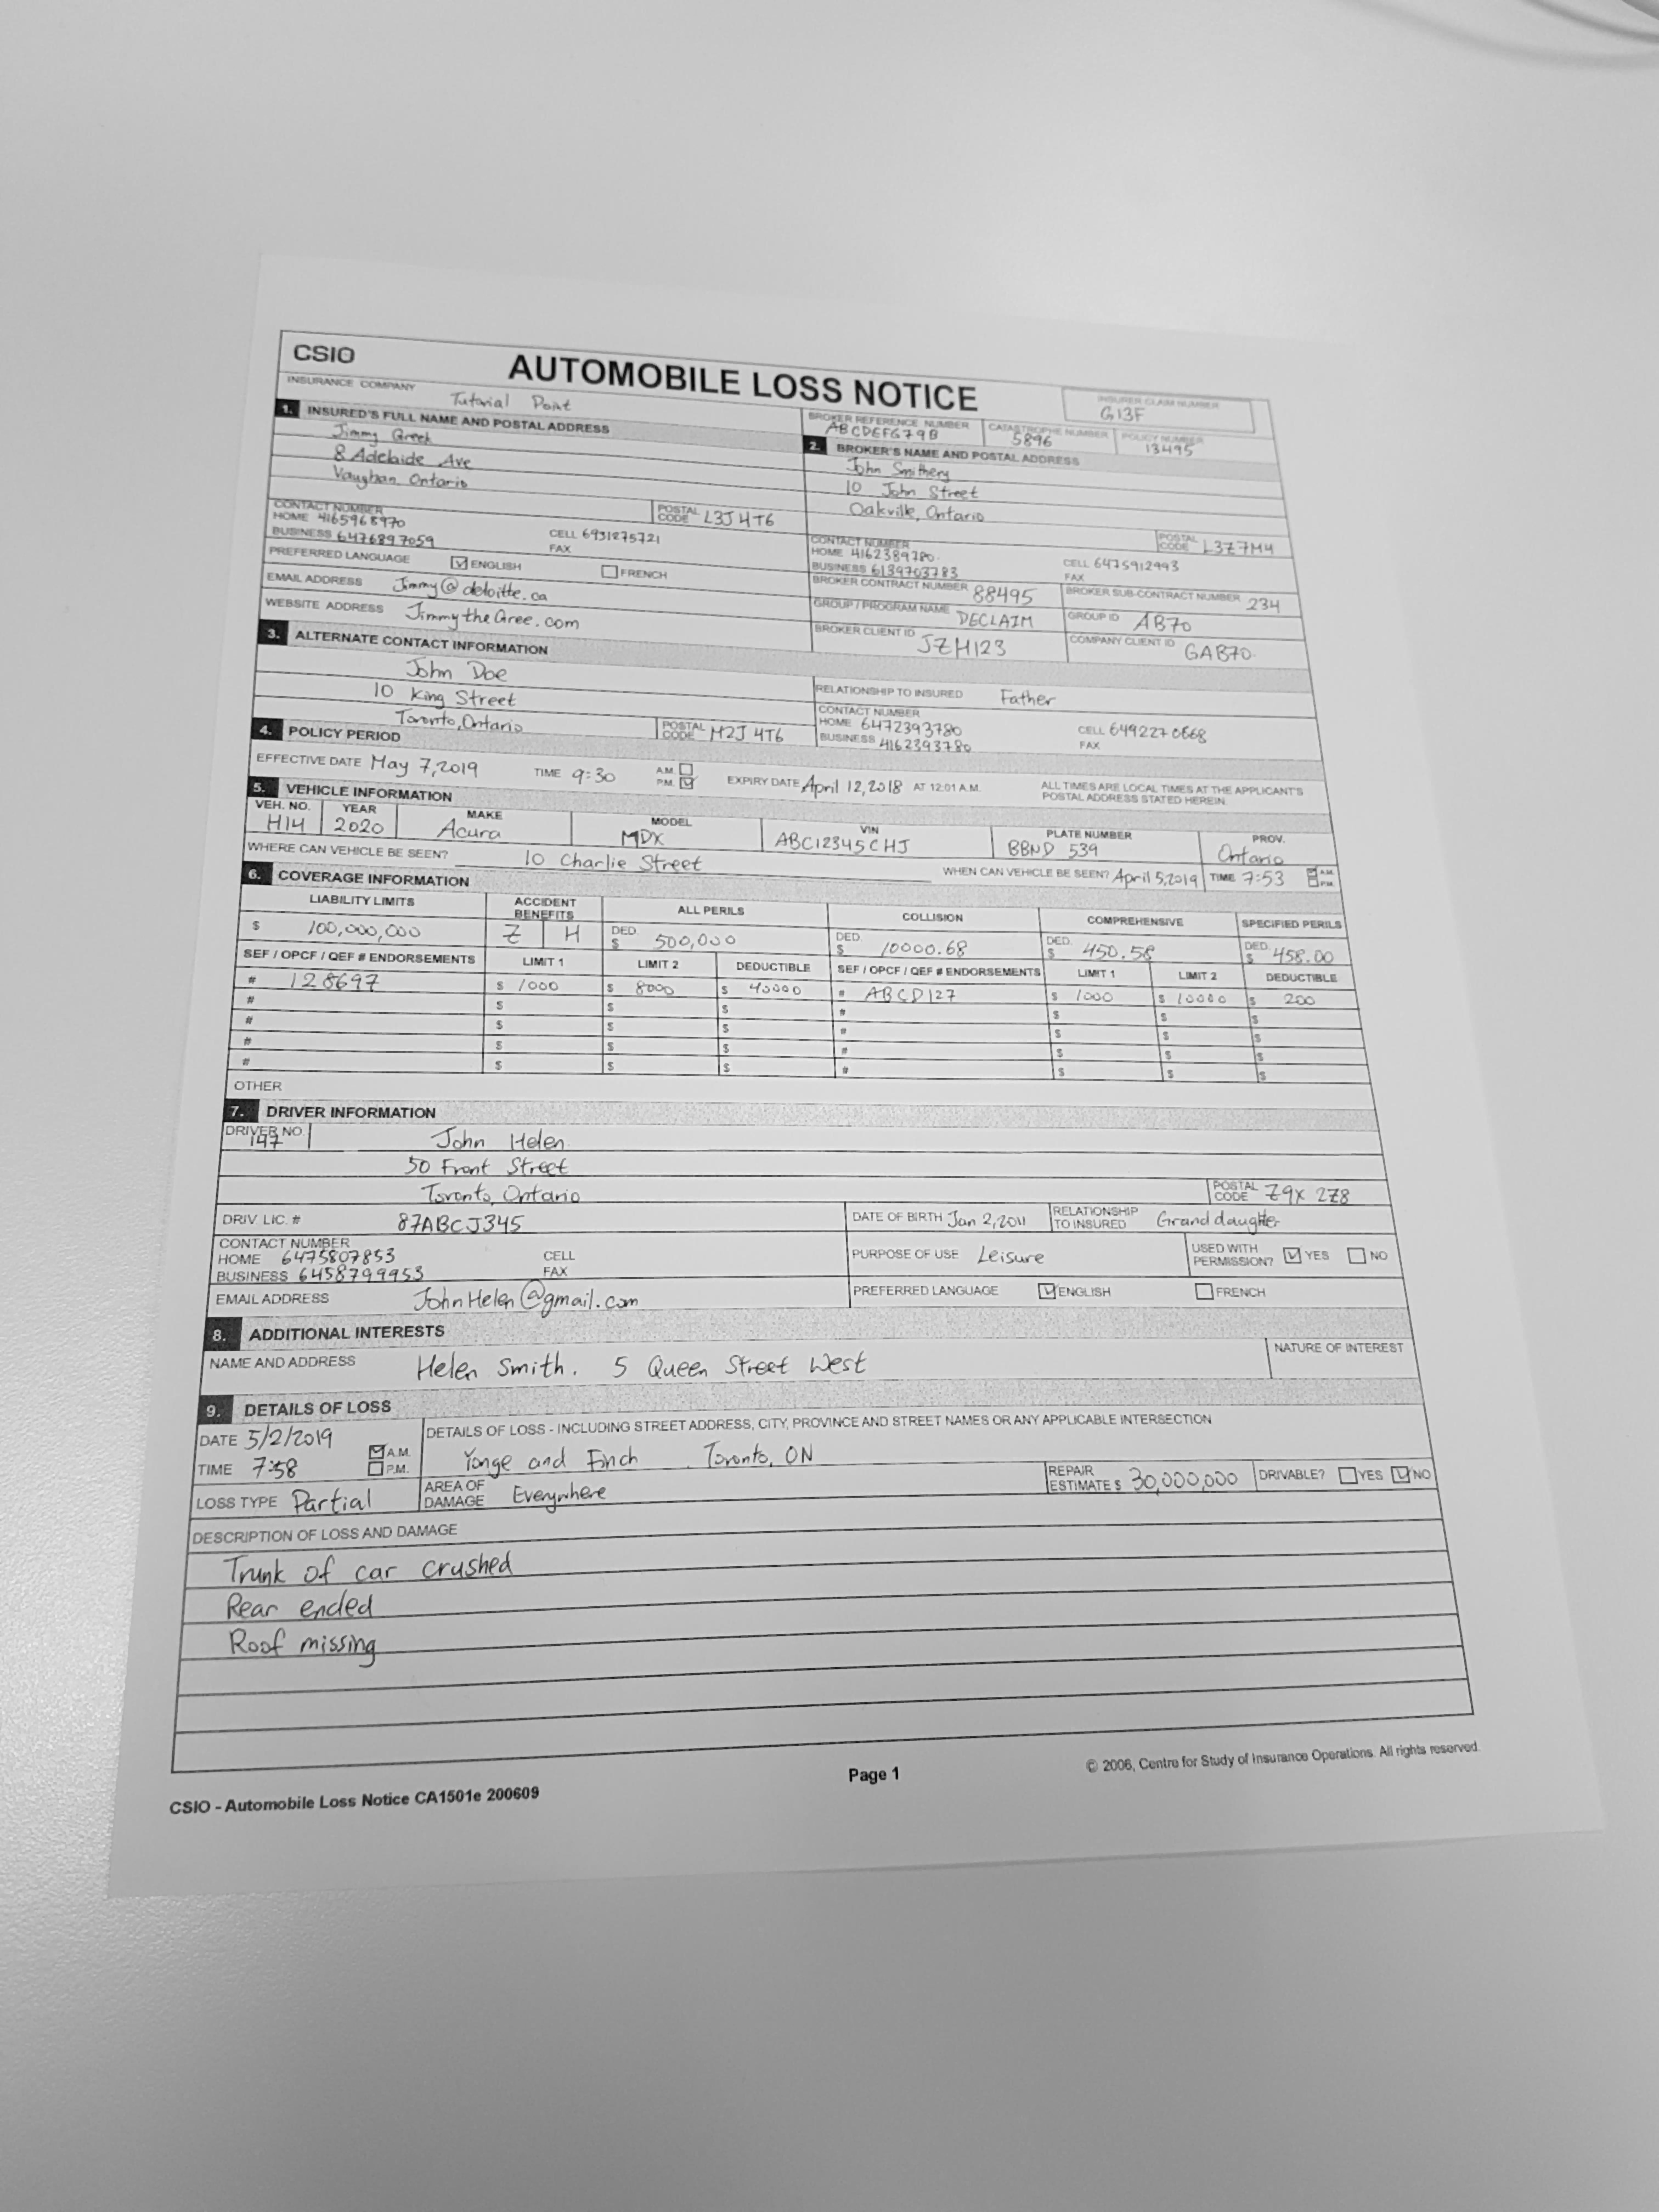 CSIO
AUTOMOBILE LOSS NOTICE
INSURANCE COMPANY Tutorial Point
INSURER CLAIM NUMBER
G13F
BROKER REFERENCE NUMBER CATASTROPHE NUMBER POLICY NUMBER
ABCDEFG79B 5896 13495
1. INSURED'S FULL NAME AND POSTAL ADDRESS
Jimmy Greek
8 Adelaide Ave
Vaughan Ontario
POSTAL CODE L3J 4T6
CONTACT NUMBER
HOME 4165968970 CELL 6931875721
BUSINESS 6476897059 FAX
PREFERRED LANGUAGE ENGLISH FRENCH
EMAIL ADDRESS Jimmy@deloitte.ca
WEBSITE ADDRESS JimmytheGree.com
2. BROKER'S NAME AND POSTAL ADDRESS
John Smithery
10 John Street
Oakville, Ontario
POSTAL CODE L3Z7M4
CONTACT NUMBER
HOME 4162389780 CELL 6475912993
BUSINESS 6139703783 FAX
BROKER CONTRACT NUMBER 88495 BROKER SUB-CONTRACT NUMBER 234
GROUP / PROGRAM NAME DECLAIM GROUP ID AB70
BROKER CLIENT ID JZH123 COMPANY CLIENT ID GAB70
3. ALTERNATE CONTACT INFORMATION
John Doe
10 King Street
Toronto, Ontario
POSTAL CODE M2J 4T6
RELATIONSHIP TO INSURED Father
CONTACT NUMBER
HOME 6472393780 CELL 6492270668
BUSINESS 4162393780 FAX
4. POLICY PERIOD
EFFECTIVE DATE May 7,2019 TIME 9:30 A.M. P.M. EXPIRY DATE April 12,2018 AT 12:01 A.M. ALL TIMES ARE LOCAL TIMES AT THE APPLICANT'S
POSTAL ADDRESS STATED HEREIN.
5. VEHICLE INFORMATION
VEH. NO. YEAR MAKE MODEL VIN PLATE NUMBER PROV.
H14 2020 Acura MDX ABC12345CHJ BBND 539 Ontario
WHERE CAN VEHICLE BE SEEN? 10 Charlie Street WHEN CAN VEHICLE BE SEEN? April 5,2019 TIME 7:53 A.M. P.M.
6. COVERAGE INFORMATION
LIABILITY LIMITS ACCIDENT BENEFITS ALL PERILS COLLISION COMPREHENSIVE SPECIFIED PERILS
$ 100,000,000 Z H DED. $ 500,000 DED. $ 10000.68 DED. $ 450.58 DED. $ 458.00
SEF / OPCF / QEF # ENDORSEMENTS LIMIT 1 LIMIT 2 DEDUCTIBLE SEF / OPCF / QEF # ENDORSEMENTS LIMIT 1 LIMIT 2 DEDUCTIBLE
# 128697 $ 1000 $ 8000 $ 40000 # ABCD127 $ 1000 $ 10000 $ 200
# $ $ $ # $ $ $
# $ $ $ # $ $ $
# $ $ $ # $ $ $
# $ $ $ # $ $ $
OTHER
7. DRIVER INFORMATION
DRIVER NO. 147 John Helen
50 Front Street
Toronto, Ontario POSTAL CODE Z9X 2Z8
DRIV. LIC. # 87ABCJ345 DATE OF BIRTH Jan 2,2011 RELATIONSHIP TO INSURED Granddaughter
CONTACT NUMBER
HOME 6475807853 CELL
BUSINESS 6458799953 FAX
PURPOSE OF USE Leisure USED WITH PERMISSION? YES NO
EMAIL ADDRESS JohnHelen@gmail.com PREFERRED LANGUAGE ENGLISH FRENCH
8. ADDITIONAL INTERESTS
NAME AND ADDRESS Helen Smith. 5 Queen Street West NATURE OF INTEREST
9. DETAILS OF LOSS
DATE 5/2/2019 A.M. DETAILS OF LOSS - INCLUDING STREET ADDRESS, CITY, PROVINCE AND STREET NAMES OR ANY APPLICABLE INTERSECTION
TIME 7:58 P.M. Yonge and Finch Toronto, ON
LOSS TYPE Partial AREA OF DAMAGE Everywhere REPAIR ESTIMATE $ 30,000,000 DRIVABLE? YES NO
DESCRIPTION OF LOSS AND DAMAGE
Trunk of car crushed
Rear ended
Roof missing
Page 1
© 2006, Centre for Study of Insurance Operations. All rights reserved.
CSIO - Automobile Loss Notice CA1501e 200609